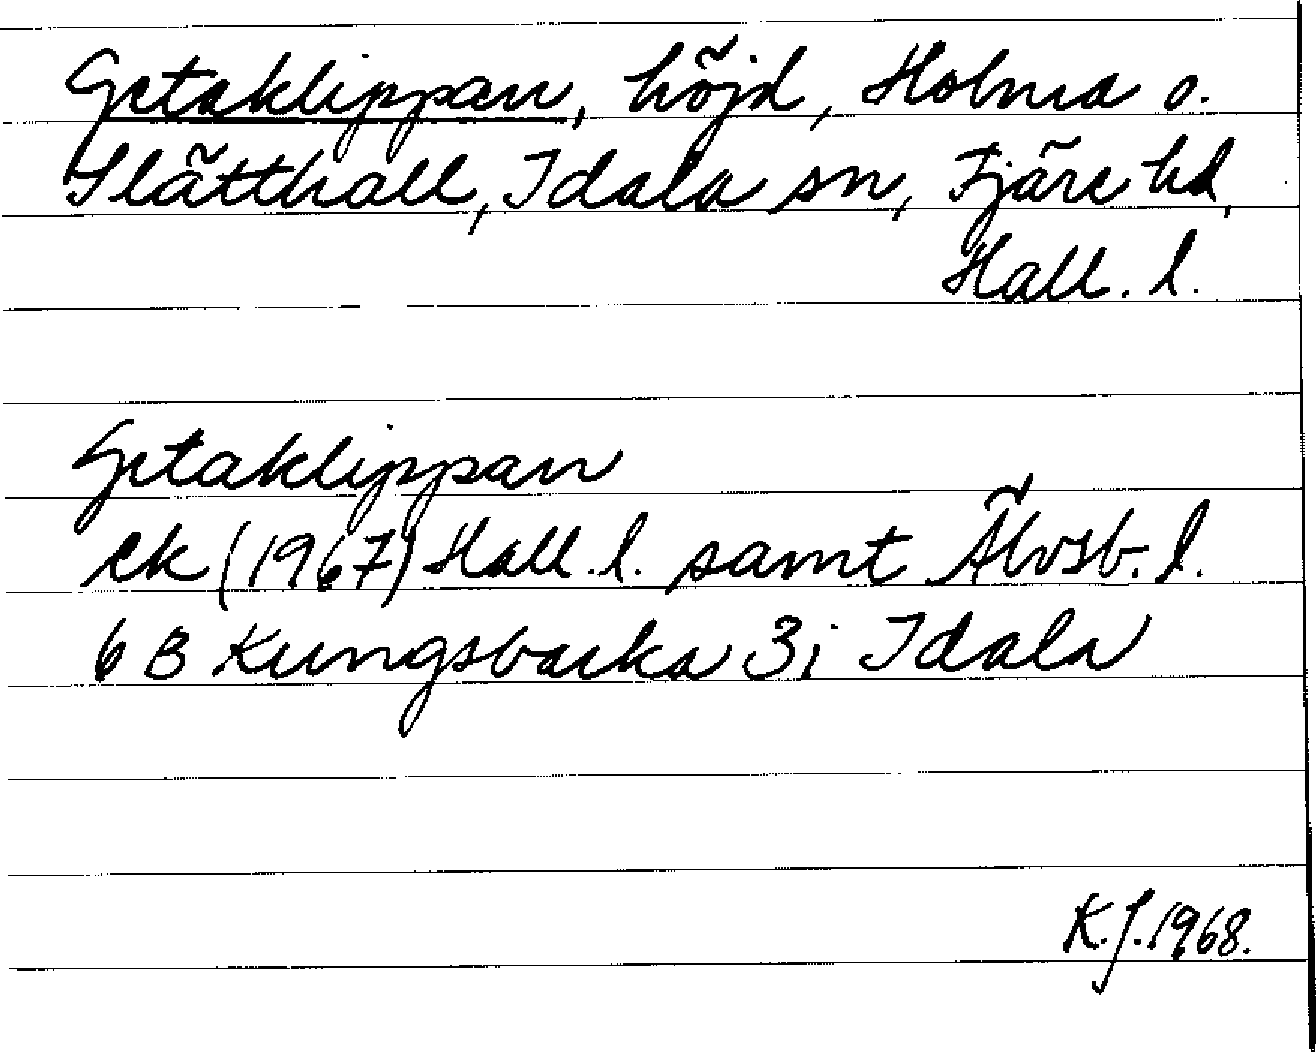 Getaklippan, höjd, Holma o.
Slätthall, Idala sn, Fjäre hd,
Hall. l.
Getaklippan
ek (1967) Hall. l. samt Älvsb. l.
6 B Kungsbacka 3i Idala
K.J. 1968.